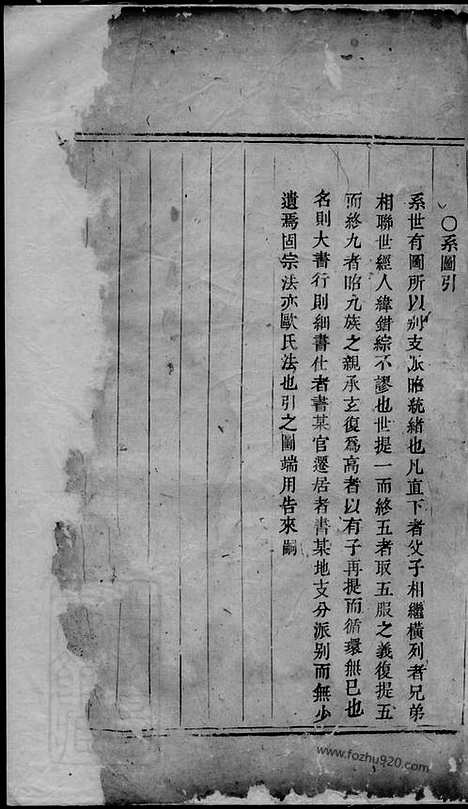 ○系圖引
系世有圖所以别支派昭統緒也凡直下者父子相繼横列者兄弟
相聯世經人緯錯綜不謬也世提一而終五者取五服之義復提五
而終九者昭九族之親承玄復爲高者以有子再提而循環無已也
名則大書行則細書仕者書某官遷居者書某地支分派别而無少
遺焉固宗法亦歐氏法也引之圖端用告來嗣
www.fozhu920.com